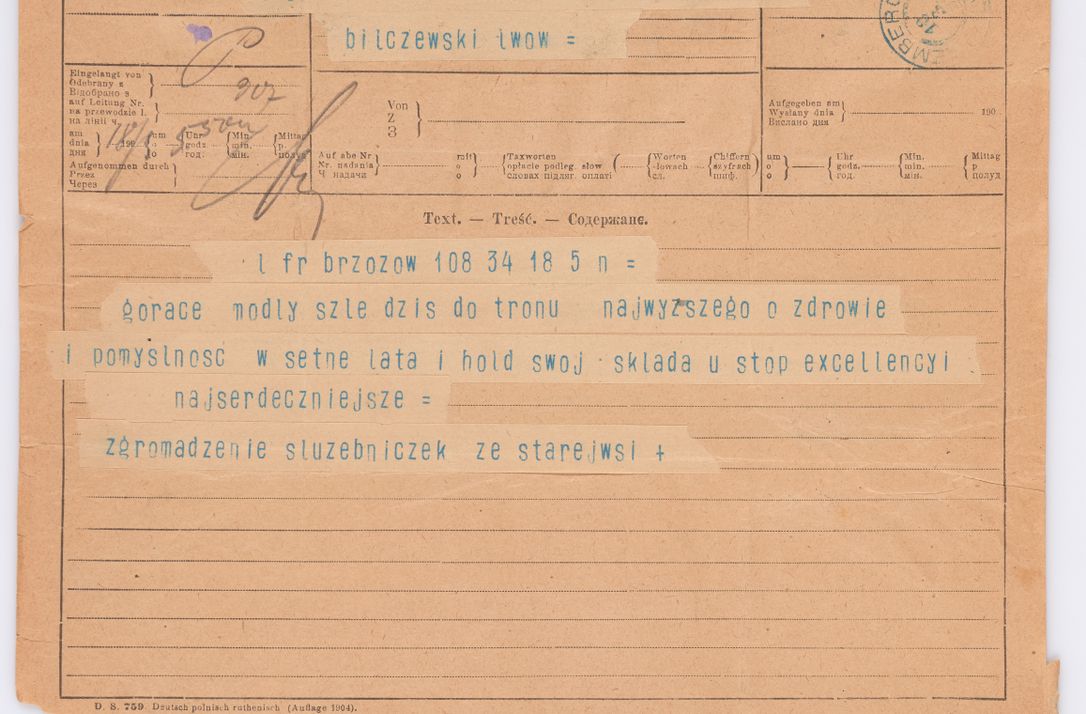 bilczewski lwow =
EMBERG
18
Eingelangt von
Odebrany z
Відобрано з
auf Leitung Nr.
na przewodzie l.
на лінії ч.
907
Von
Z
З
Aufgegeben am
Wysłany dnia
Вислано дня
190
am
dnia
дня
18/5
190
um
o
о
Uhr
godz
год.
Min.
min.
мін.
Mittag
p.
полуд
Aufgenommen durch
Przez
Через
Auf abe Nr
Nr. nadania
Ч надачи
mit
o
о
Taxworten
opłacie podleg. słow
словах підляг. оплаті
Worten
słowach
сл.
Chiffern
szyfrach
шиф.
um
o
о
Uhr
godz.
год.
Min.
min.
мін.
Mittag
p
полуд
Text. — Treść. — Содержанє.
l fr brzozow 108 34 18 5 n =
gorace modly szle dzis do tronu najwyzszego o zdrowie
i pomyslnosc w setne lata i hold swoj sklada u stop excellencyi
najserdeczniejsze =
zgromadzenie sluzebniczek ze starejwsi +
D. S. 759. Deutsch polnisch ruthenisch (Auflage 1904).